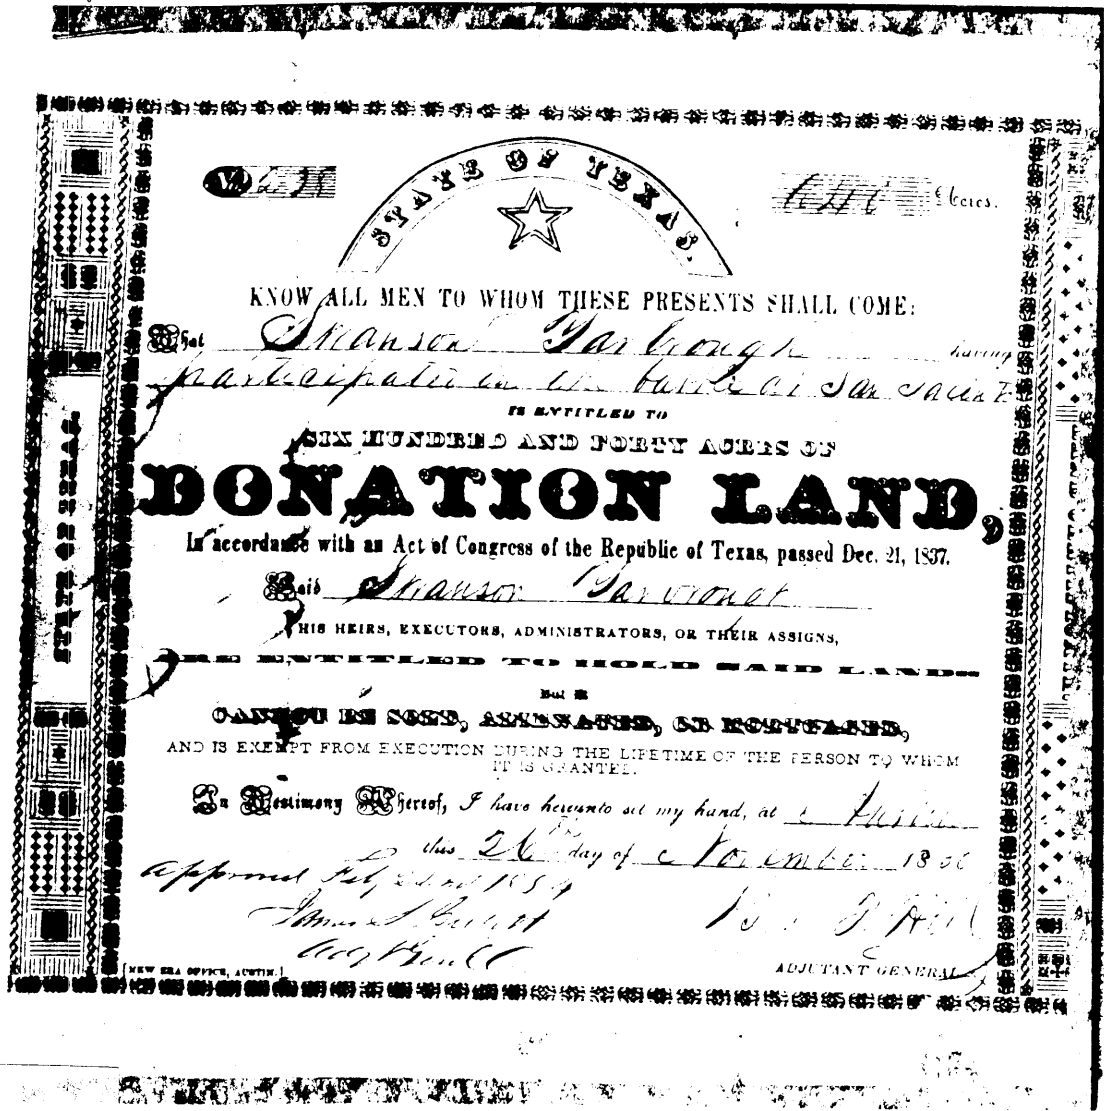 STATE OF TEXAS.
No 638
640 Acres.
KNOW ALL MEN TO WHOM THESE PRESENTS SHALL COME:
That Swanson Yarbrough having
participated in the battle of San Jacinto
IS ENTITLED TO
SIX HUNDRED AND FORTY ACRES OF
DONATION LAND,
In accordance with an Act of Congress of the Republic of Texas, passed Dec. 21, 1837.
Said Swanson Yarbrough
HIS HEIRS, EXECUTORS, ADMINISTRATORS, OR THEIR ASSIGNS,
ARE ENTITLED TO HOLD SAID LAND
But it
CANNOT BE SOLD, ALIENATED, OR MORTGAGED,
AND IS EXEMPT FROM EXECUTION DURING THE LIFETIME OF THE PERSON TO WHOM
IT IS GRANTED.
In Testimony Whereof, I have hereunto set my hand, at Austin
this 26th day of November 1850
approved Feby 22nd 1854
James S Gillett
Adjt Genl
B. F. Hill
ADJUTANT GENERAL
[NEW ERA OFFICE, AUSTIN.]
STATE OF TEXAS.
ADJUTANT'S OFFICE